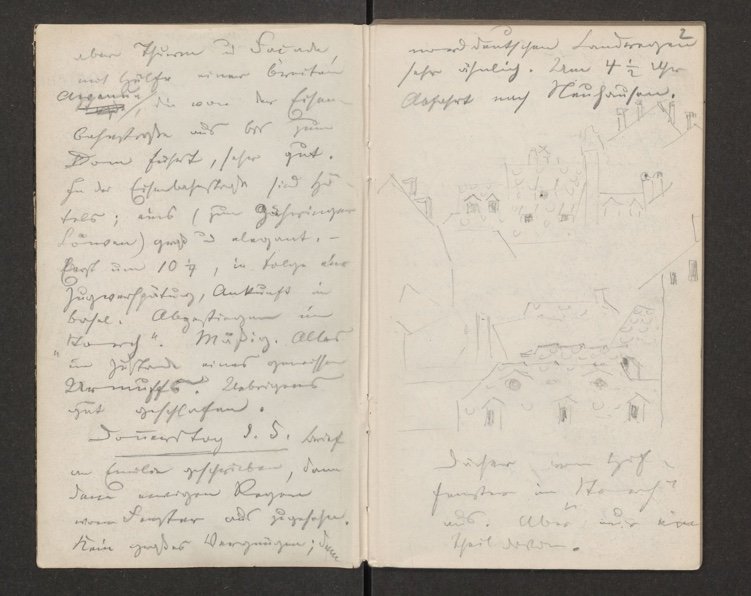 aber Thurm u Façade
mit Hülfe einer breiten
Avenue, die von der Eisen-
bahnstraße aus bis zum
Dom führt, sehr gut.
In der Eisenbahnstraße sind Hô-
tels; eins (zum Zähringer
Löwen) groß und elegant. –
Erst um 10 ¼, in Folge einer
Zugverspätung, Ankunft in
Basel. Abgestiegen im
„Storch“. Mäßig. Alles
im Zustande eines gewissen
Urmuffs. Uebrigens
gut geschlafen.
Donnerstag d. 5. Brief
an Emilie geschrieben, dann
dem ewigen Regen
vom Fenster aus zugesehn.
Kein großes Vergnügen; denn
2
norddeutschen Landregen
sehr ähnlich. Um 4 ½ Uhr
Abfahrt nach Neuhausen.
Dächer vom
fenster im „Storch“
aus. Aber nur ein
Theil davon.